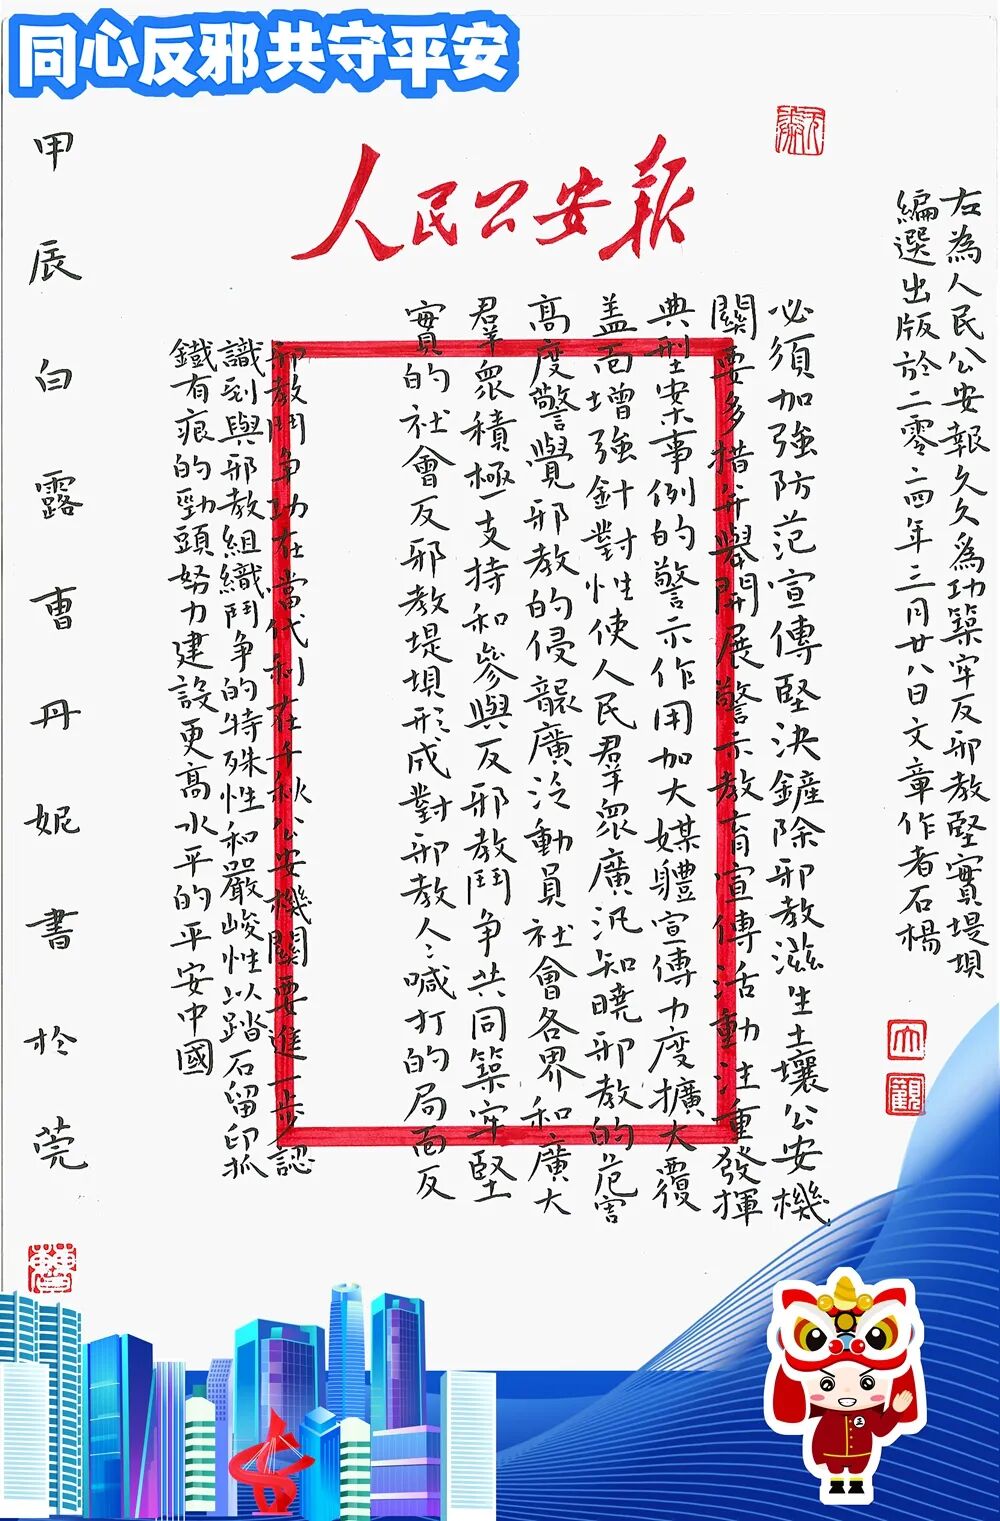 同心反邪共守平安
人民公安報
右為人民公安報久久為功築牢反邪教堅實堤垻
編選出版於二零二四年三月廿八日文章作者石楊
必須加強防范宣傳堅決鏟除邪教滋生土壤公安機
關要多措并舉開展警示教育宣傳活動注重發揮
典型案事例的警示作用加大媒體宣傳力度擴大覆
盖面增強針對性使人民群眾廣汎知曉邪教的危害
高度警覺邪教的侵襲廣泛動員社會各界和廣大
群眾積極支持和參與反邪教鬥争共同築牢堅
實的社會反邪教堤垻形成對邪教人人喊打的局面反
邪教鬥争功在當代利在千秋公安機關要進一步認
識到與邪教組織鬥争的特殊性和嚴峻性以踏石留印抓
鐵有痕的勁頭努力建設更高水平的平安中國
甲辰白露曹丹妮書於莞